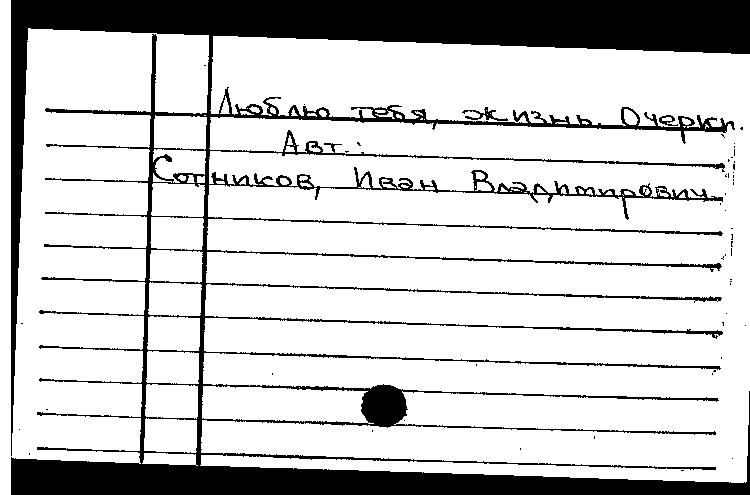 Люблю тебя, жизнь. Очерки.
Авт.:
Сотников, Иван Владимирович